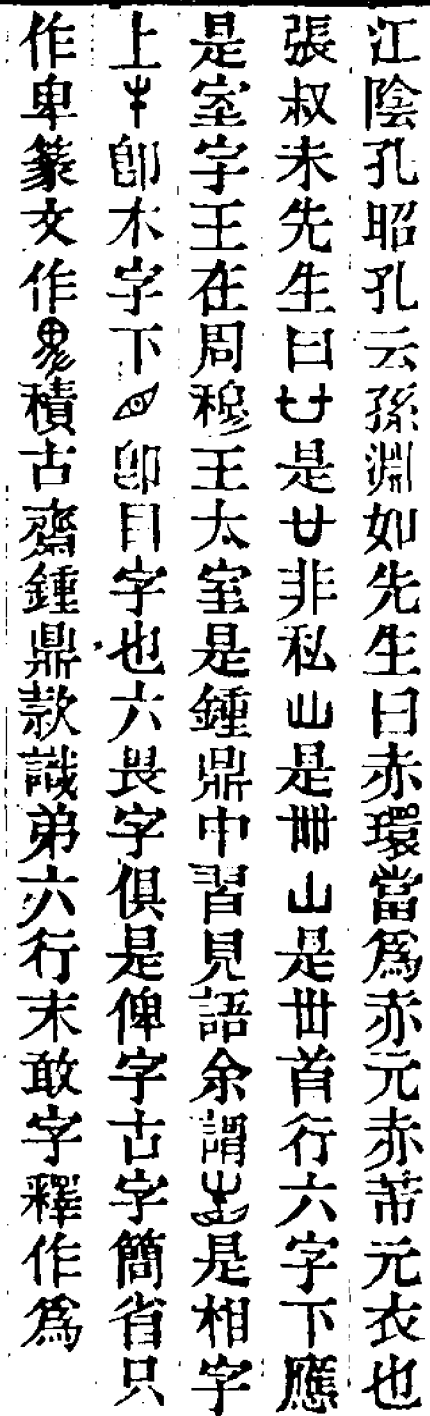 江陰孔昭孔云孫淵如先生曰赤環當爲赤元赤芾元衣也
張叔未先生曰是廿非私山是卌山是丗首行六字下應
是室字王在周穆王太室是鍾鼎中習見語余謂是相字
上卽木字下卽目字也六畏字俱是俾字古字簡省只
作卑篆文作積古齋鍾鼎款識弟六行末敢字釋作爲